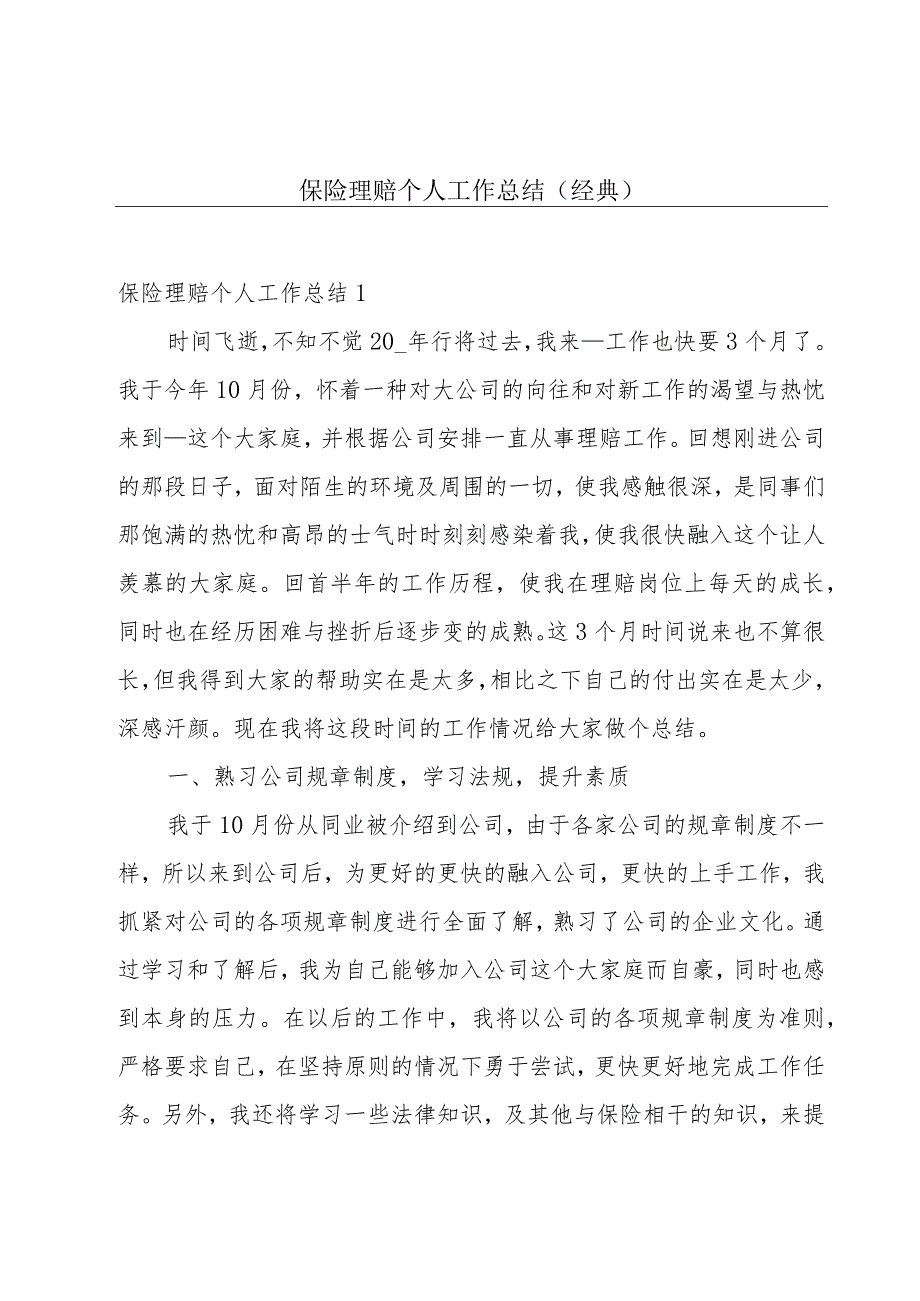 保险理赔个人工作总结（经典）
保险理赔个人工作总结 1
时间飞逝,不知不觉 20_年行将过去,我来—工作也快要 3 个月了。
我于今年 10 月份，怀着一种对大公司的向往和对新工作的渴望与热忱
来到—这个大家庭，并根据公司安排一直从事理赔工作。回想刚进公司
的那段日子，面对陌生的环境及周围的一切，使我感触很深，是同事们
那饱满的热忱和高昂的士气时时刻刻感染着我,使我很快融入这个让人
羡慕的大家庭。回首半年的工作历程，使我在理赔岗位上每天的成长，
同时也在经历困难与挫折后逐步变的成熟。这 3 个月时间说来也不算很
长,但我得到大家的帮助实在是太多,相比之下自己的付出实在是太少，
深感汗颜。现在我将这段时间的工作情况给大家做个总结。
一、熟习公司规章制度，学习法规，提升素质
我于 10 月份从同业被介绍到公司，由于各家公司的规章制度不一
样，所以来到公司后，为更好的更快的融入公司，更快的上手工作，我
抓紧对公司的各项规章制度进行全面了解，熟习了公司的企业文化。通
过学习和了解后，我为自己能够加入公司这个大家庭而自豪，同时也感
到本身的压力。在以后的工作中，我将以公司的各项规章制度为准则，
严格要求自己，在坚持原则的情况下勇于尝试，更快更好地完成工作任
务。另外，我还将学习一些法律知识，及其他与保险相干的知识，来提